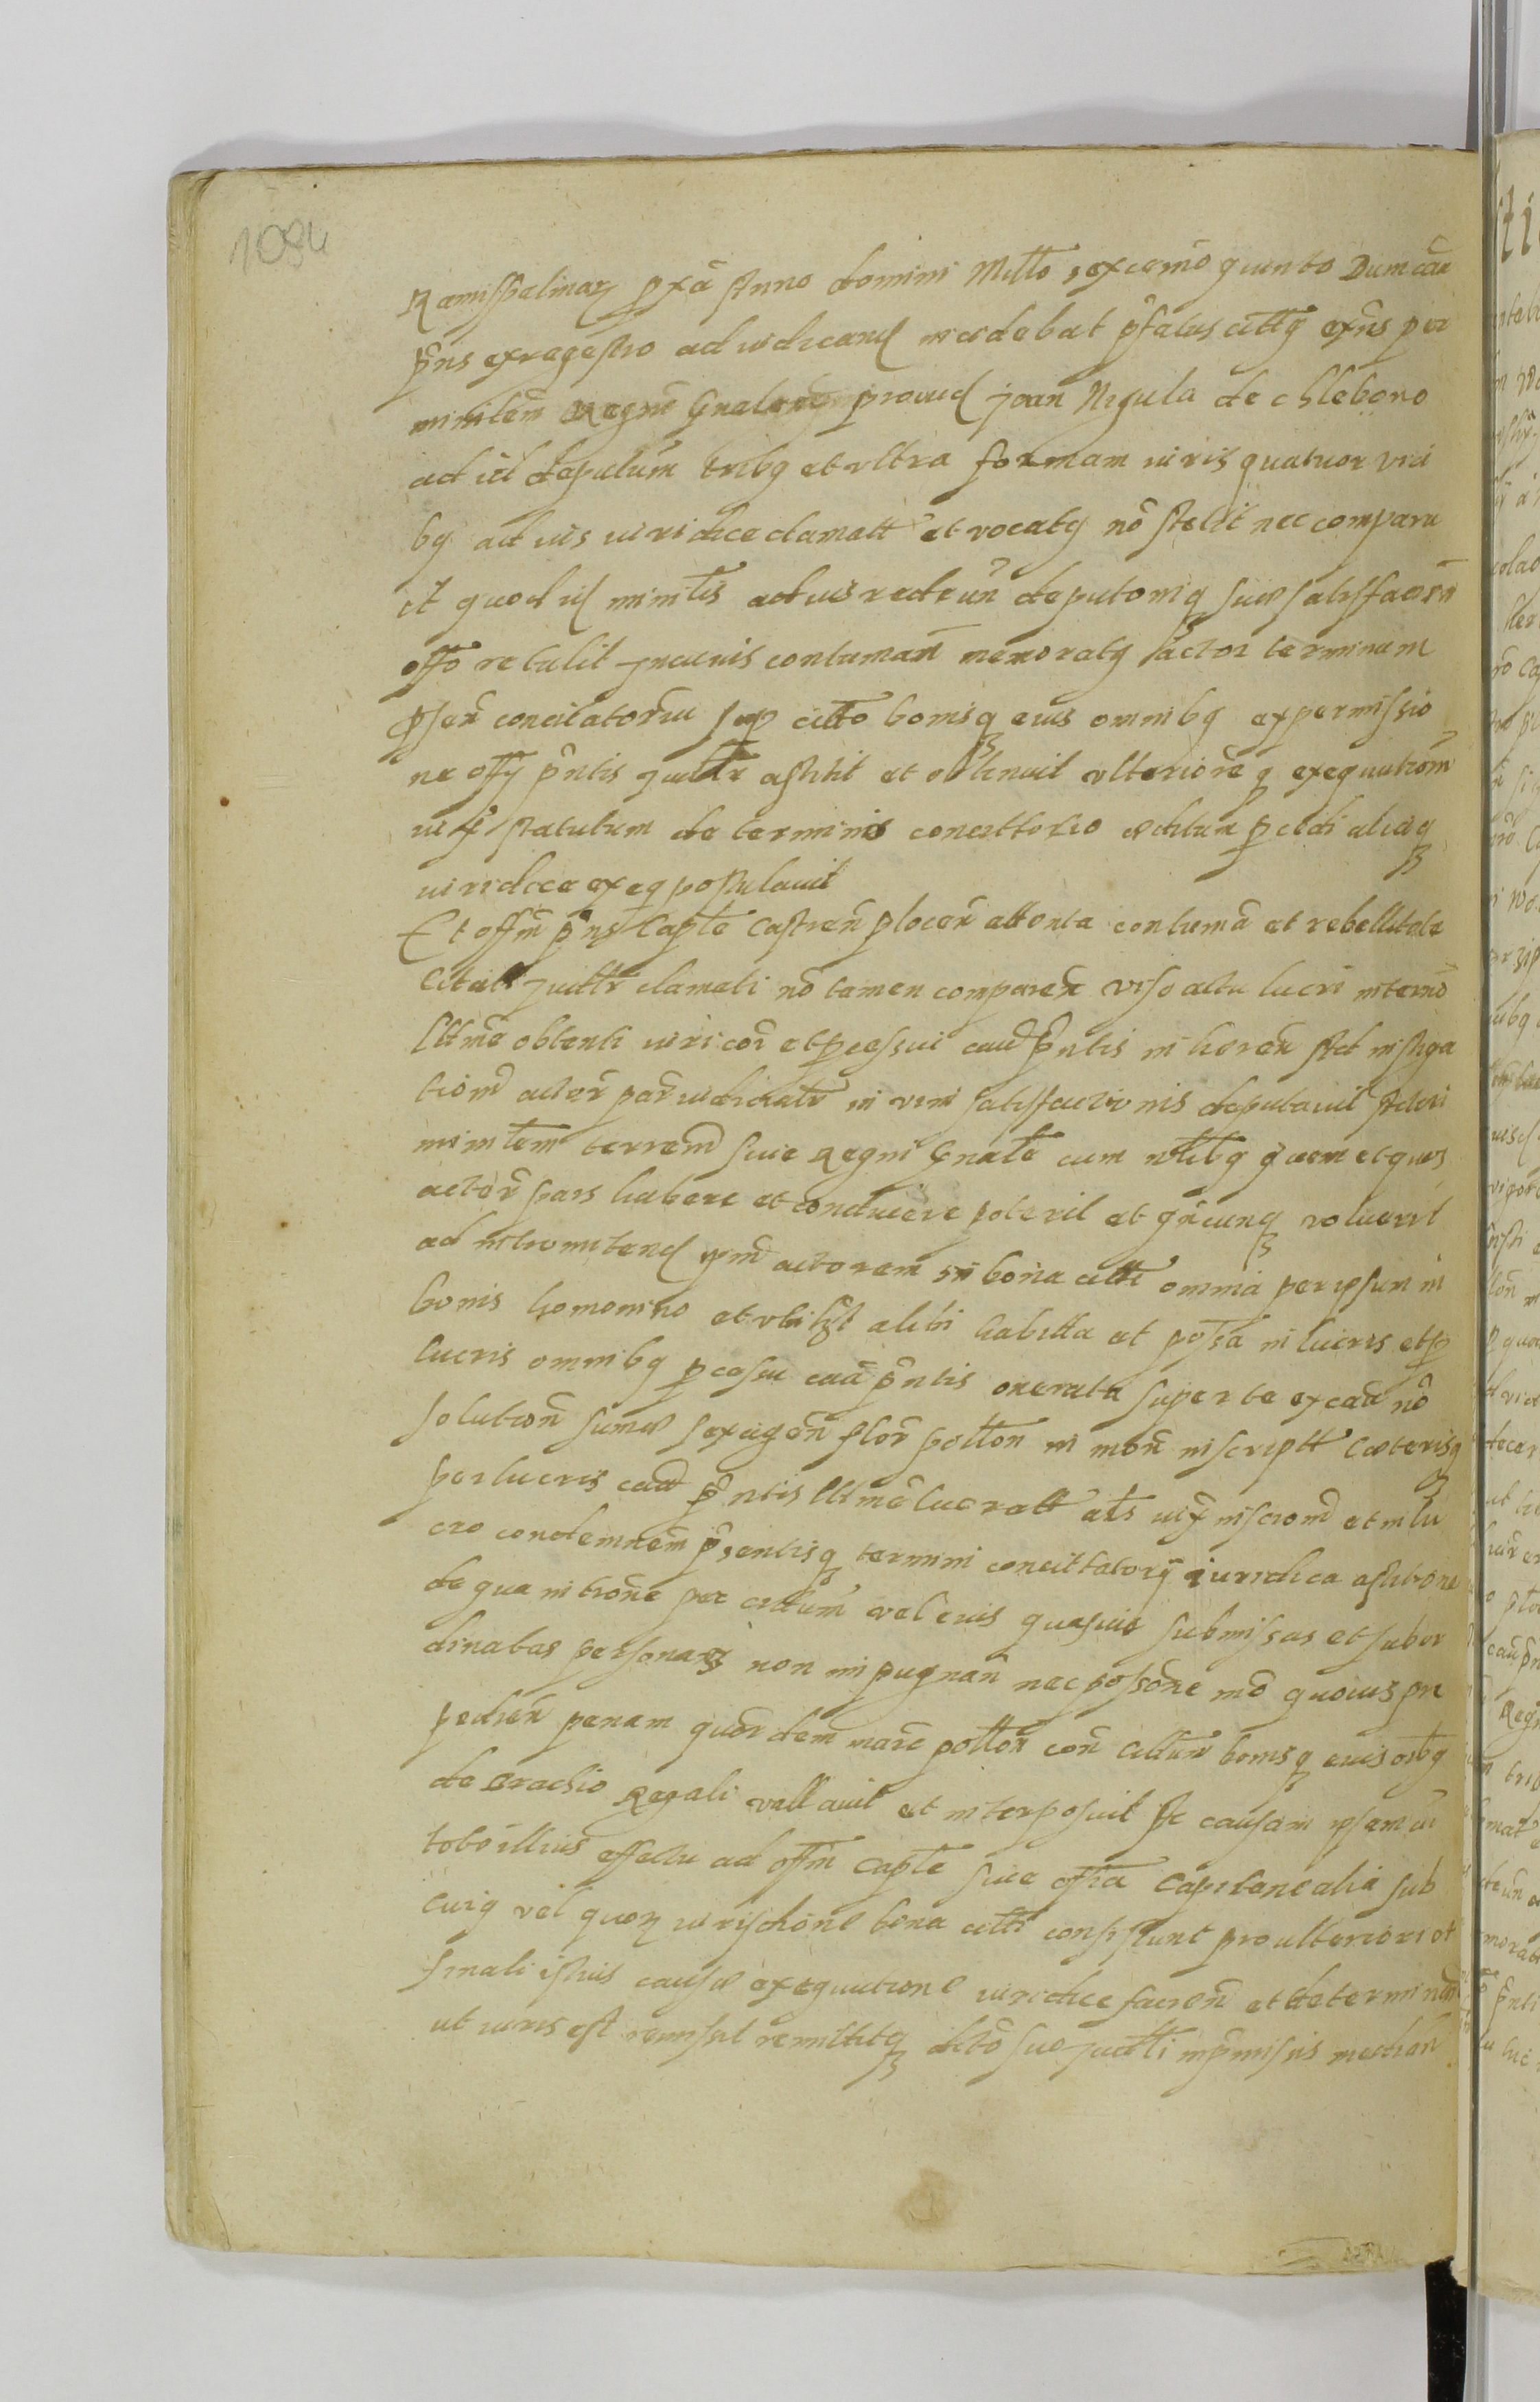 1084
Ramispalmar pxa Anno domini Millo sexcemo quinto Dum cau
pns ex regestro ad iudicand incidebat pfatus cittq exns per
minislem Regni Gnalem prouid joan Nigula de chlebowo
ad id deputum tribq et vltra formam iuris quatuor vici
bq ad ius iuridice clamatt et vocatq no stetit nec comparu
it quod id minstis ad ius redeun deputoniq suæ satisfaciens
offo retulit In cuius contuman memoratq actor terminum
psen concitatorium sup citto bonisq eius omnibq ex permissio
ne offy pntis juditr astitit et obtinuit vlterioreq exequutiom
iux statutum de terminis concittorio editum pcedi aliasq
iuridice exeq postulauit
Et offm pns Capte Castren plocen attenta contuma et rebellitate
Citati juditr clamati no tamen comparen viso actu lucri intermo
lttme obtenti iuri cor et pcessui cau pntis inheren Ad instiga
tiom actor par iudicialr in vim satisfactionis deputauit Actori
ministem terrem siue Regni Gnale cum nbilibq quem et quos
actor pars habere et conducere poterit et qncunq voluerit
ad intromitend ipm actorem in bona citti omnia per ipsum in
bonis homonino et vbilibt alibi habitta et possa in lucris et p
lucris omnibq pcessu caa pntis onerata super te ex caa no
solution sumæ sexagen flor pollon in mon inscriptt Cæterisq
perlucris caa pntis lttme lucratt als iux inscriom et in lu
cro condemnem psentisq termini concittatory iuridica astitione
de qua intione per citum vel euis quasuis submissas et subor
dinatas personas non impugnan nec possone mo quouis pre
pedien penam quor dem marc pollon con cittum bonisq euis oibq
de brachio Regali vallauit et interposuit Ac causam ipsam in
toto illius effectu ad offm Capte siue offia Capitanealia sub
cuiq vel quor iurisditione bona citti consistunt pro vlteriori et
finali istius causæ exequutione iuridice facien et determinan
ut iuris est remisit remittitq dcto suo juditi inpmissis median